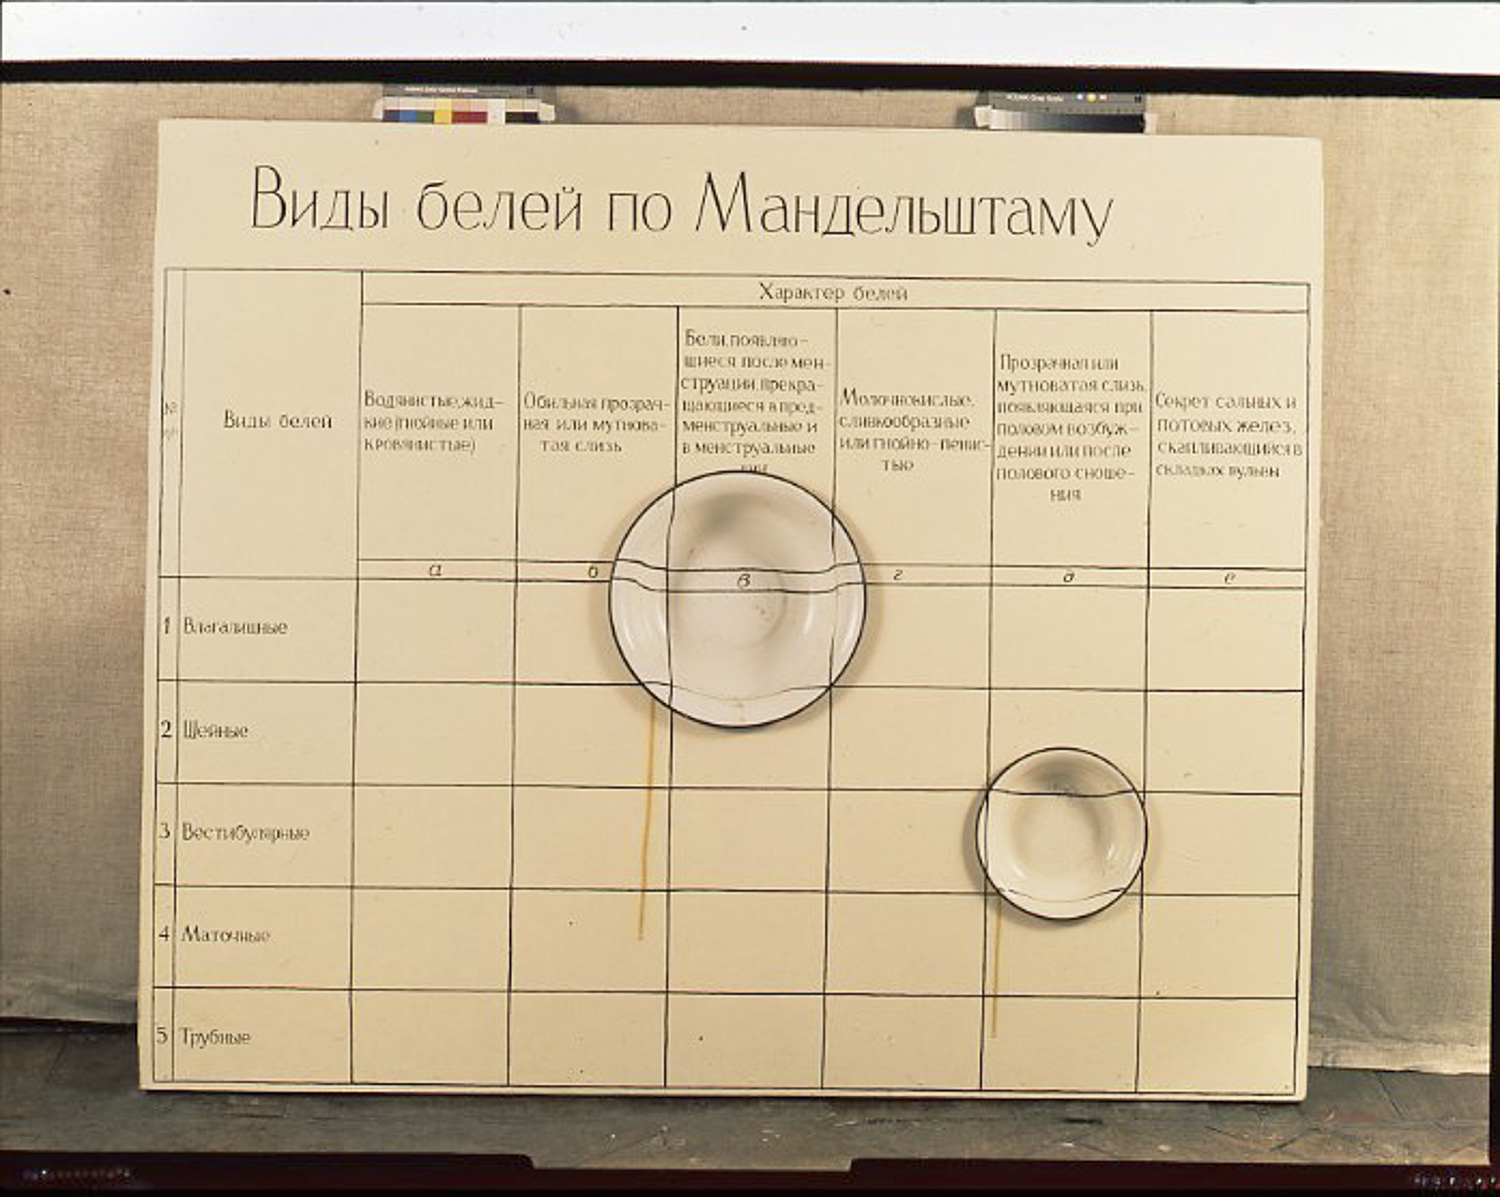 Виды белей по Мандельштаму
Характер белей
№
Виды белей
Водянистые, жид-
кие (гнойные или
кровянистые)
Обильная прозрач-
ная или мутнова-
тая слизь
Бели, появляю-
щиеся после мен-
струации, прекра-
щающиеся в пред-
менструальные и
в менструальные
Молочнокислые,
сливкообразные
или гнойно-пенис-
тые
Прозрачная или
мутноватая слизь,
появляющаяся при
половом возбуж-
дении или после
полового сноше-
ния
Секрет сальных и
потовых желез,
скапливающийся в
складках вульвы
а
б
в
г
д
е
1 Влагалищные
2 Шеечные
3 Вестибулярные
4 Маточные
5 Трубные